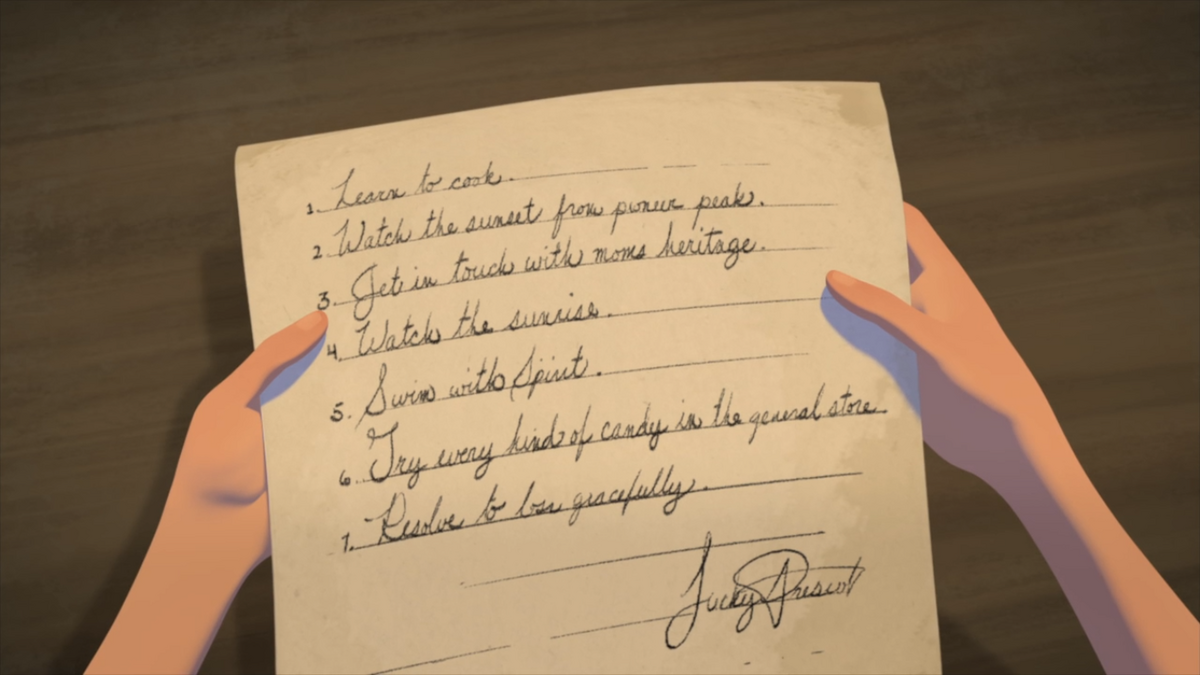 1. Learn to cook.
2. Watch the sunset from pioneer peak.
3. Get in touch with moms heritage.
4. Watch the sunrise.
5. Swim with Spirit.
6. Try every kind of candy in the general store.
7. Resolve to lose gracefully.
Lucky Prescott